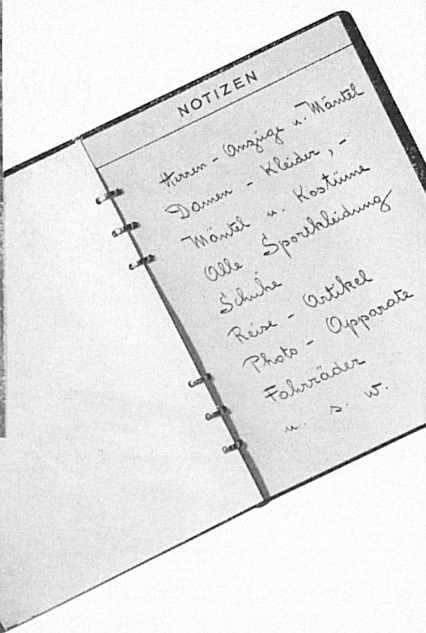 NOTIZEN
Herren - Anzüge u. Mäntel
Damen - Kleider, -
Mäntel u. Kostüme
Alle Sportkleidung
Schuhe
Reise - Artikel
Photo - Apparate
Fahrräder
u. s. w.